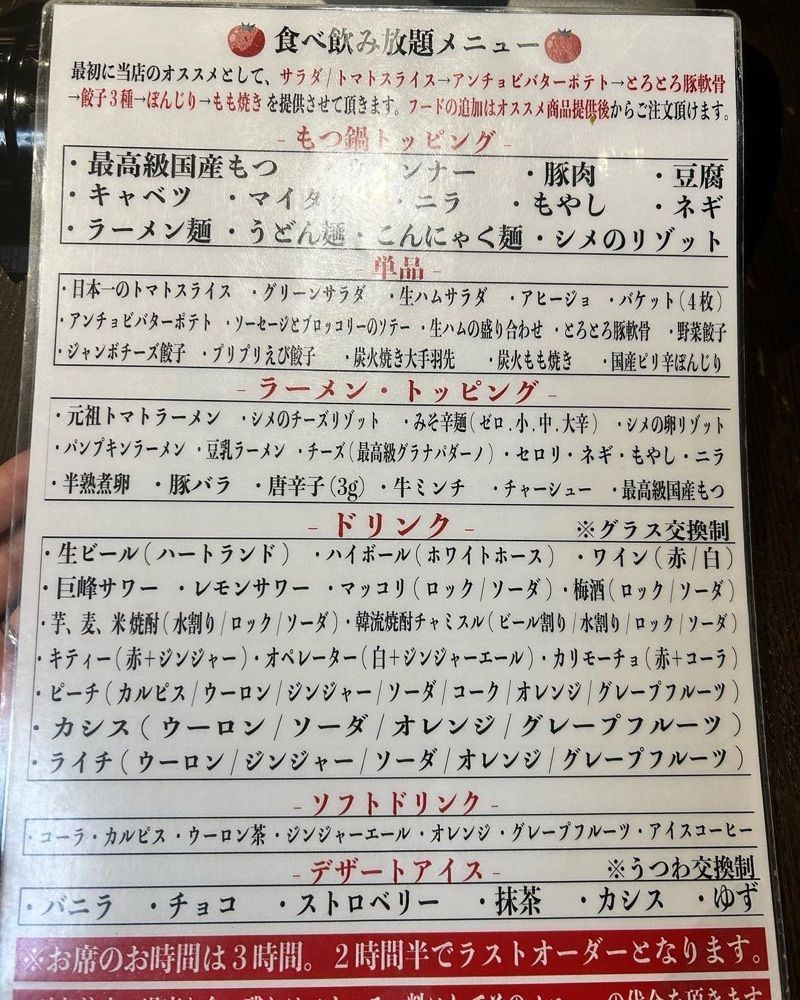 食べ飲み放題メニュー
最初に当店のオススメとして、サラダ/トマトスライス→アンチョビバターポテト→とろとろ豚軟骨
→餃子3種→ぼんじり→もも焼き を提供させて頂きます。フードの追加はオススメ商品提供後からご注文頂けます。
- もつ鍋トッピング -
・最高級国産もつ ンナー ・豚肉 ・豆腐
・キャベツ ・マイタケ ・ニラ ・もやし ・ネギ
・ラーメン麺 ・うどん麺 ・こんにゃく麺 ・シメのリゾット
- 単品 -
・日本一のトマトスライス ・グリーンサラダ ・生ハムサラダ ・アヒージョ ・バケット(4枚)
・アンチョビバターポテト ・ソーセージとブロッコリーのソテー ・生ハムの盛り合わせ ・とろとろ豚軟骨 ・野菜餃子
・ジャンボチーズ餃子 ・プリプリえび餃子 ・炭火焼き大手羽先 ・炭火もも焼き ・国産ピリ辛ぼんじり
- ラーメン・トッピング -
・元祖トマトラーメン ・シメのチーズリゾット ・みそ辛麺(ゼロ.小.中.大辛) ・シメの卵リゾット
・パンプキンラーメン ・豆乳ラーメン ・チーズ(最高級グラナパダーノ) ・セロリ・ネギ・もやし・ニラ
・半熟煮卵 ・豚バラ ・唐辛子(3g) ・牛ミンチ ・チャーシュー ・最高級国産もつ
- ドリンク - ※グラス交換制
・生ビール(ハートランド) ・ハイボール(ホワイトホース) ・ワイン(赤/白)
・巨峰サワー ・レモンサワー ・マッコリ(ロック/ソーダ) ・梅酒(ロック/ソーダ)
・芋、麦、米焼酎(水割り/ロック/ソーダ)・韓流焼酎チャミスル(ビール割り/水割り/ロック/ソーダ)
・キティー(赤+ジンジャー)・オペレーター(白+ジンジャーエール)・カリモーチョ(赤+コーラ)
・ピーチ(カルピス/ウーロン/ジンジャー/ソーダ/コーク/オレンジ/グレープフルーツ)
・カシス(ウーロン/ソーダ/オレンジ/グレープフルーツ)
・ライチ(ウーロン/ジンジャー/ソーダ/オレンジ/グレープフルーツ)
- ソフトドリンク -
・コーラ・カルピス・ウーロン茶・ジンジャーエール・オレンジ・グレープフルーツ・アイスコーヒー
- デザートアイス - ※うつわ交換制
・バニラ ・チョコ ・ストロベリー ・抹茶 ・カシス ・ゆず
※お席のお時間は3時間。2時間半でラストオーダーとなります。